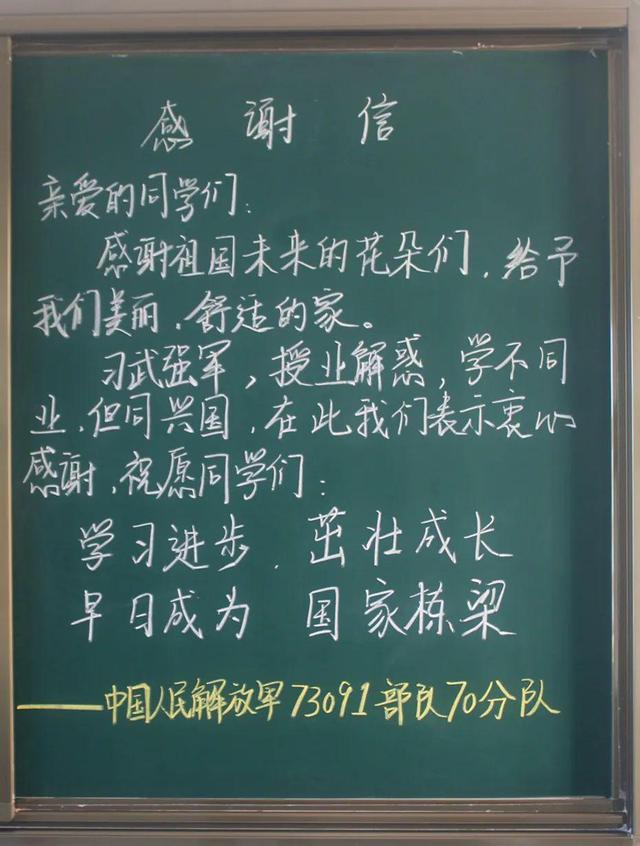 感谢信
亲爱的同学们:
感谢祖国未来的花朵们,给予
我们美丽、舒适的家。
习武强军,授业解惑,学不同
业,但同兴国,在此我们表示衷心
感谢,祝愿同学们:
学习进步、茁壮成长
早日成为 国家栋梁
——中国人民解放军73091部队70分队